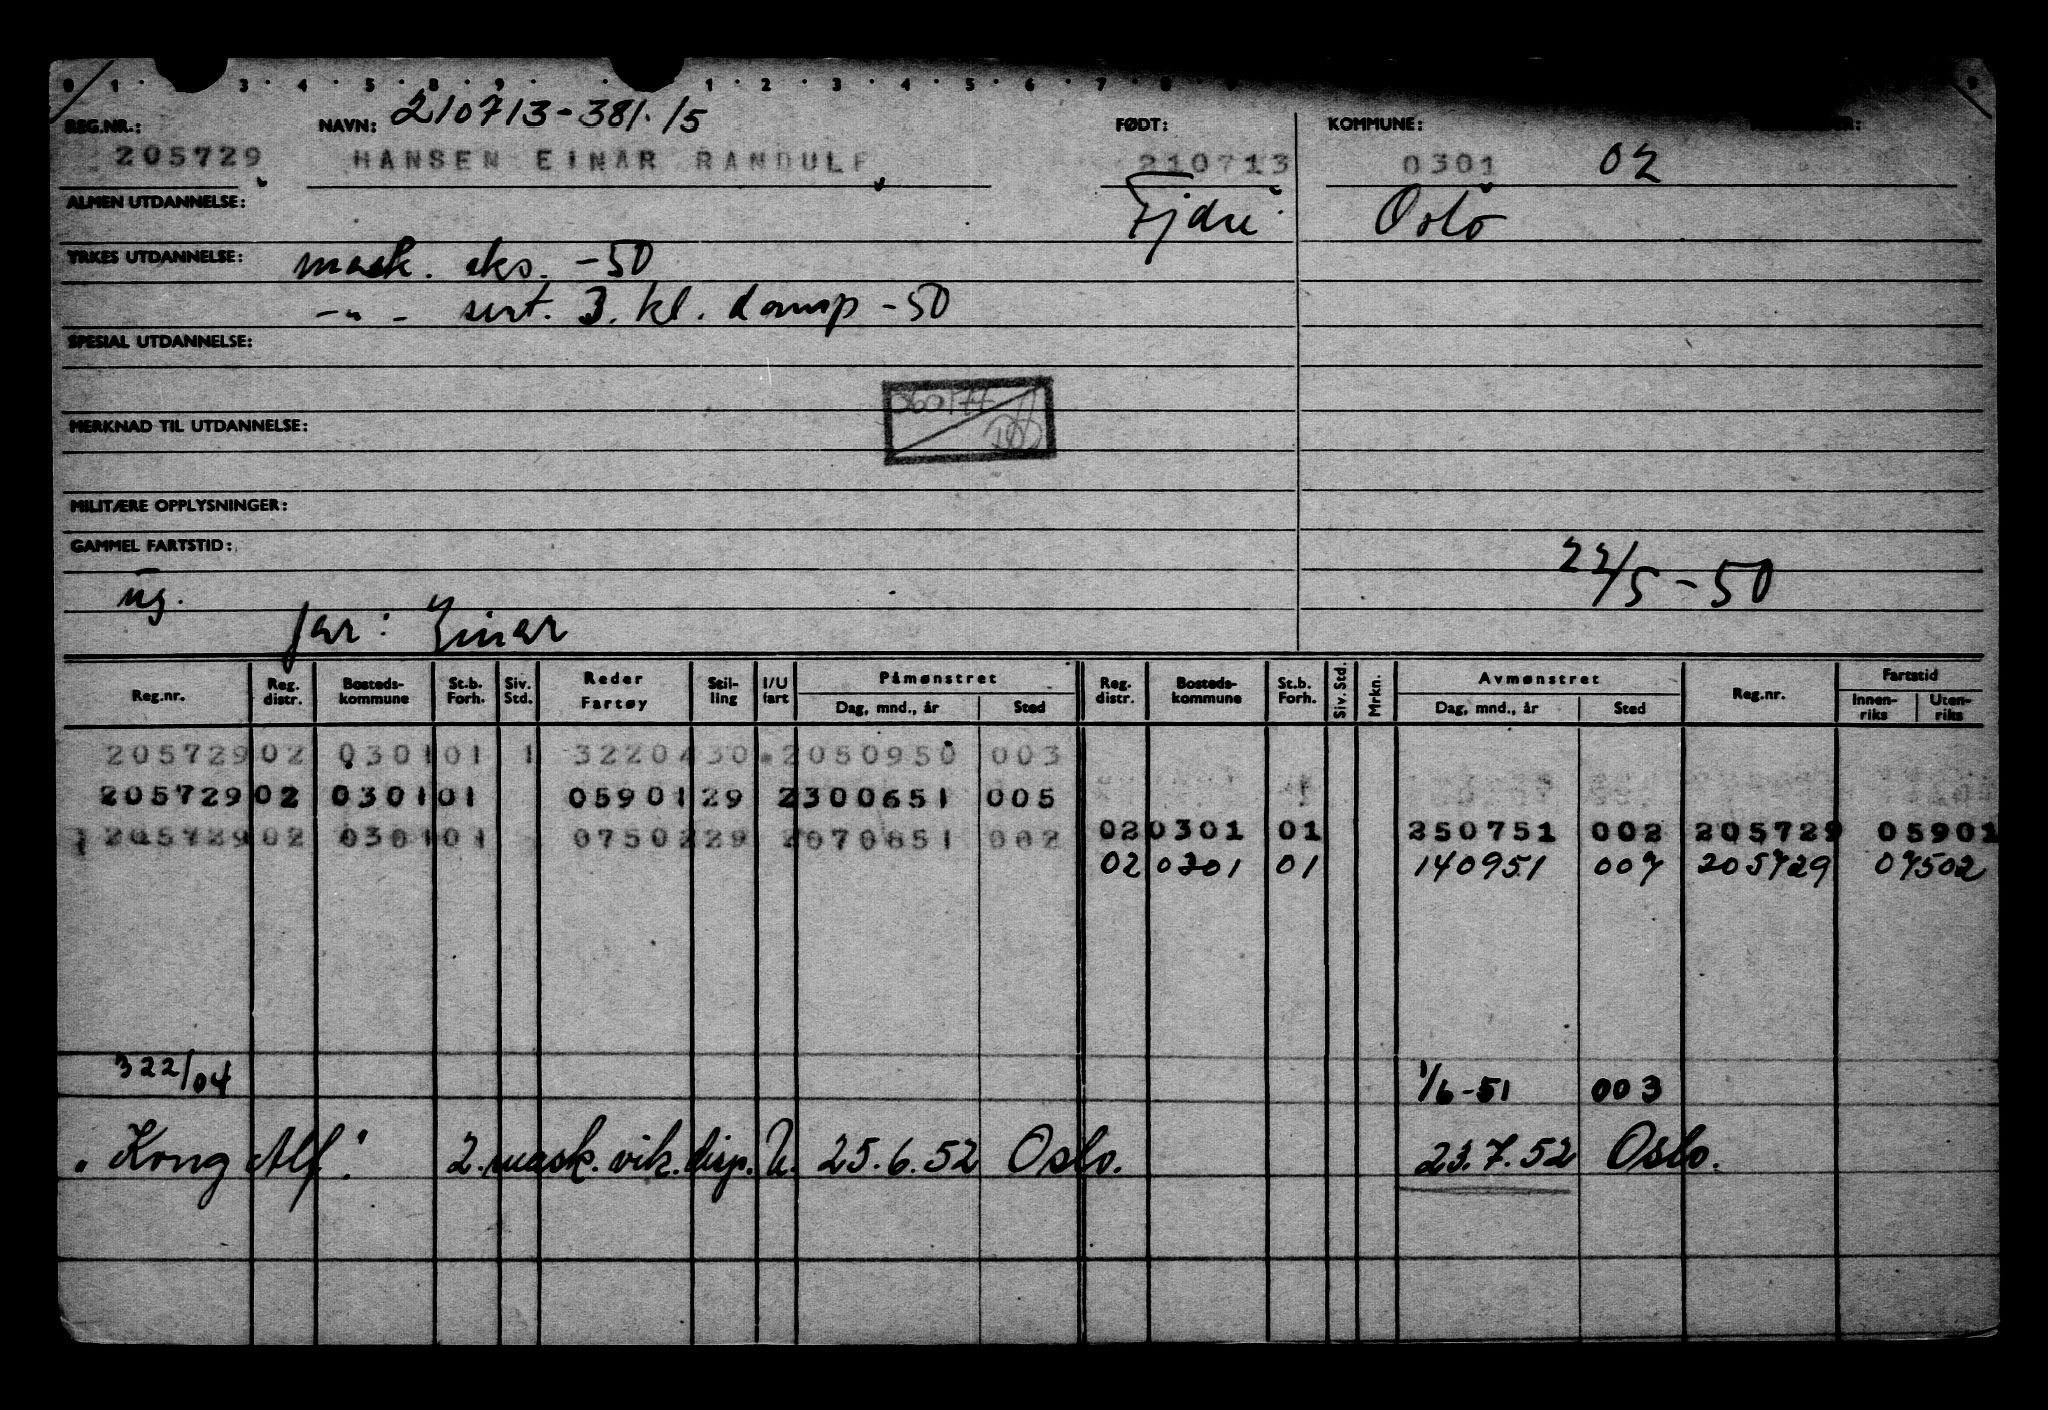 0 1 · 3 · 4 · 5 · 8 · 9 · · 1 · 2 · 3 · 4 · 5 · 6 · 7 · 8 · 9 9
210713-381.15
REG.NR.: NAVN: FØDT: KOMMUNE:
205729 HANSEN EINAR RANDULF 210713 0301 02
ALMEN UTDANNELSE: Oslo
YRKES UTDANNELSE: mask. eks. -50
-"- sert. 3. kl. damp -50
SPESIAL UTDANNELSE:
MERKNAD TIL UTDANNELSE:
MILITÆRE OPPLYSNINGER:
GAMMEL FARTSTID:
22/5-50
ug.
far: Einar
Reg.nr. Reg. distr. Bosteds-kommune St.b. Forh. Siv. Std. Reder Fartøy Stil-ling I/U fart Påmønstret Dag, mnd., år Sted Reg. distr. Bosteds-kommune St.b. Forh. Siv. Std. Mrkn. Avmønstret Dag, mnd., år Sted Reg.nr. Fartstid Innen-riks Uten-riks
205729 02 0301 01 1 32204 30 2 050950 003
205729 02 0301 01 05901 29 2 300651 005
205729 02 0301 01 07502 29 2 070651 002 02 0301 01 250751 002 205729 05901
02 0301 01 140951 007 205729 07502
322/04 1/6-51 003
"Kong Alf." 2. mask. vik. disp. U. 25.6.52 Oslo. 23.7.52 Oslo.